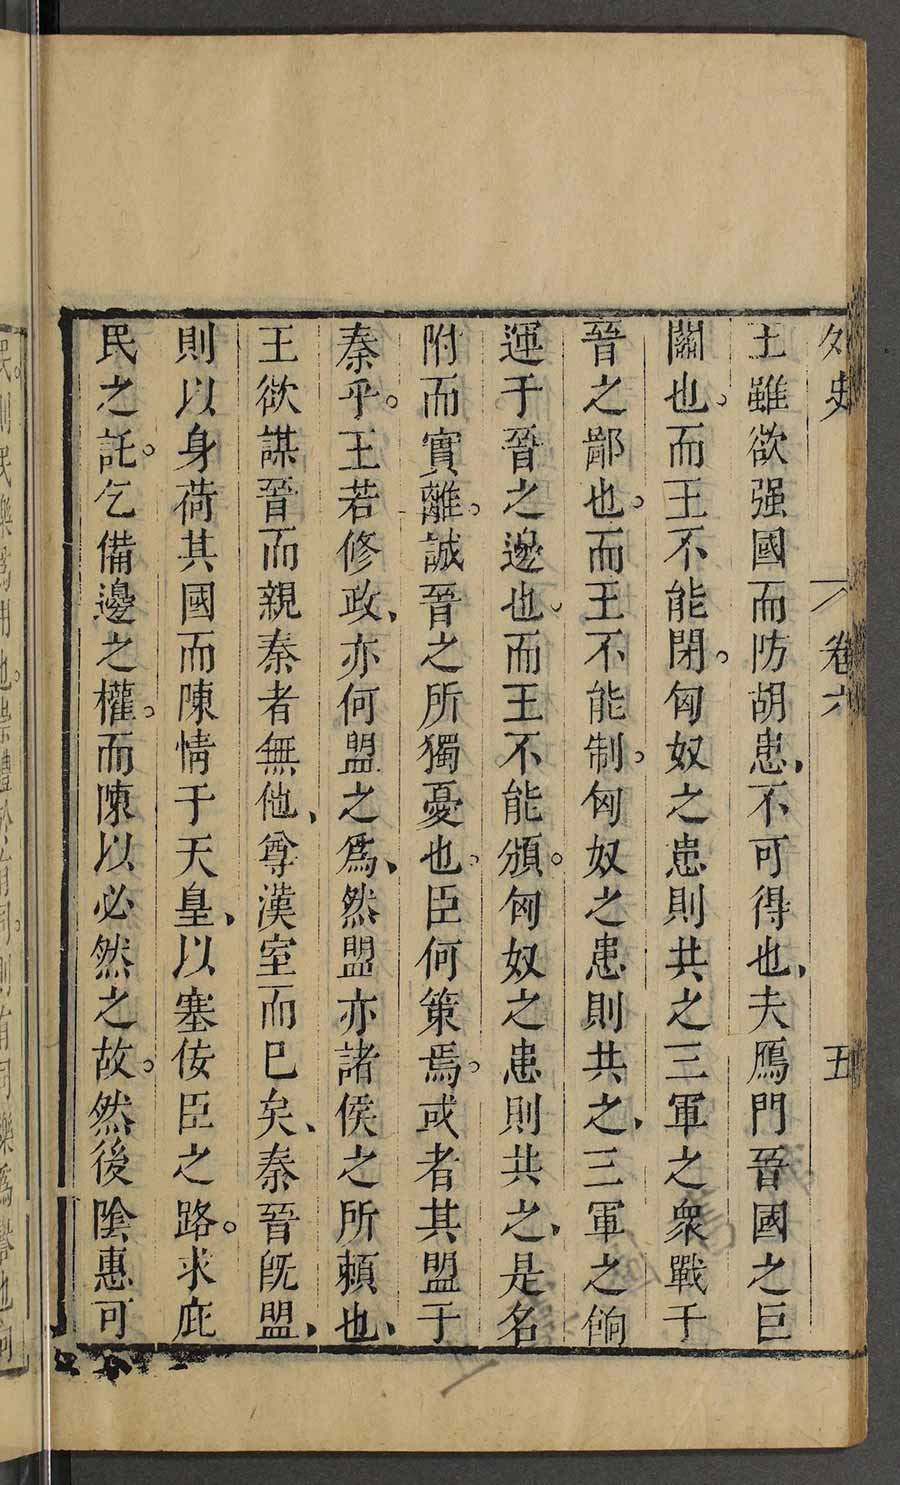 外史 卷六 五
王雖欲强國而防胡患、不可得也、夫鴈門晉國之巨
關也。而王不能閉。匈奴之患則共之三軍之衆戰于
晉之鄙也。而王不能制。匈奴之患則共之、三軍之餉
運于晉之邊也、而王不能頒。匈奴之患則共之、是名
附而實離。誠晉之所獨憂也。臣何策焉。或者其盟于
秦乎。王若修政、亦何盟之爲、然盟亦諸侯之所賴也、
王欲謀晉而親秦者無他、尊漢室而已矣、秦晉旣盟、
則以身荷其國而陳情于天皇、以塞佞臣之路。求庇
民之託。乞備邊之權。而陳以必然之故。然後陰惠可